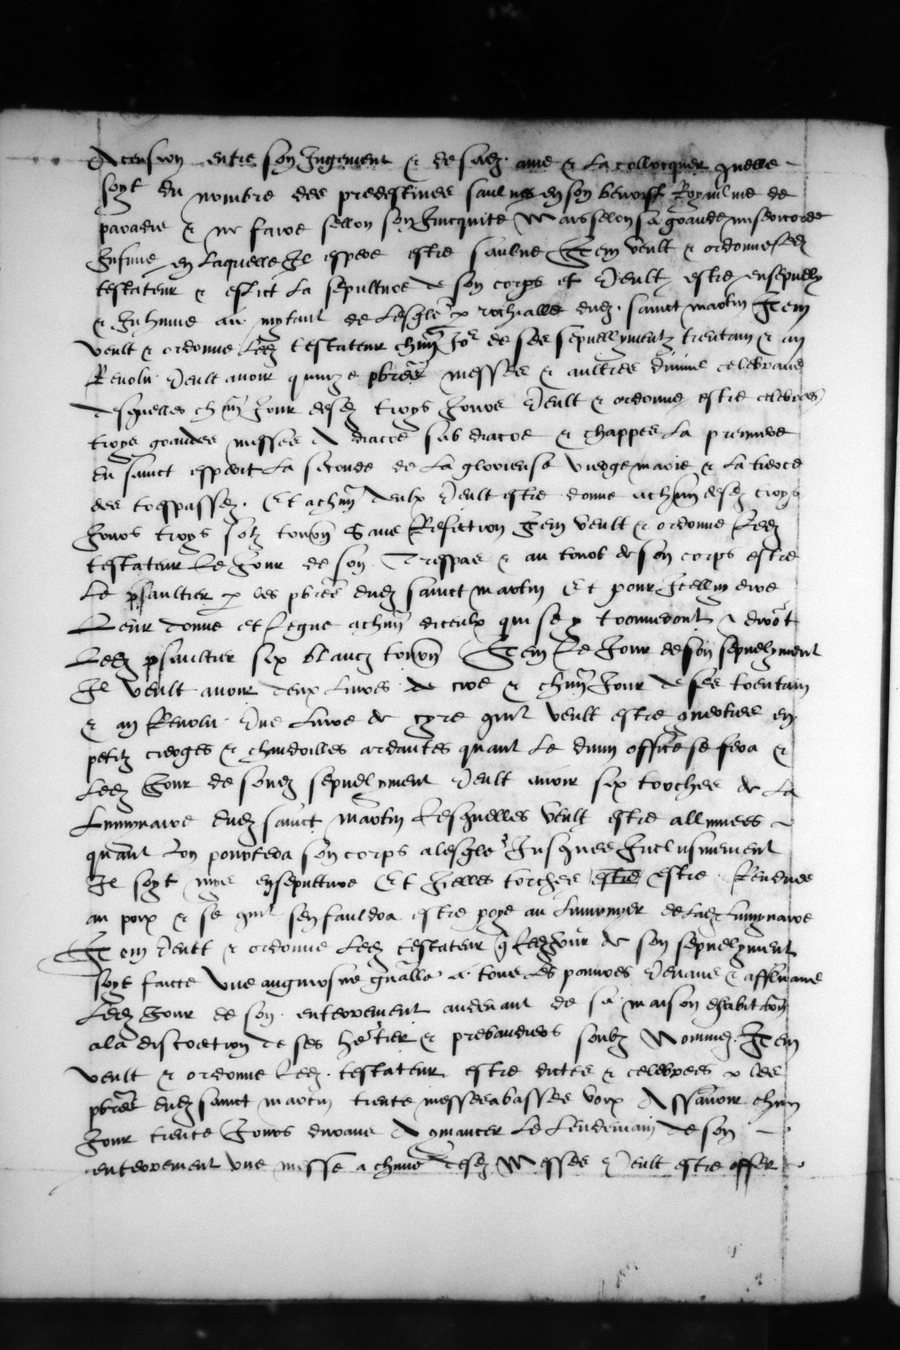 Acension entre son Jugement & de sad. ame & la collocquer quelle
soyt du nombre des predestines saulues en son benoist Royaulme de
paradis & ne faire sellon son Inicquite Mais sellon sa grande misericorde
Infinie en laquelle Il espere estre saulue Item veult & ordonne led
testateur & eslict la sepulture de son corps et veult estre ensepuely
& Inhume au mytant de lesglse parochialle dud. sainct martin Item
veult & ordonne led testateur chun Jor de ses sepuellymentz trentain & an
Revolu veult avoir quinze pbres messes & aultres divins celebrans
desquelles chun Jour desd troys Jours veult & ordonne estre celebrees
troys grandes messes A diacre sub diacre & chappes la premiere
du sainct esperit la seconde de la glorieuse vierge marie & la tierce
des trespassez. Et a chun deulx veult estre donne a chun desd troys
Jours troys solz tourn Sans Refection Item veult & ordonne led
testateur le Jour de son Trespas & au tour de son corps estre
le psaultier p les pbres dud sainct martin Et pour Icelluy dire
leur donne et legue a chun diceulx qui se y trouveront & diront
led psaultier six blancz tourn Item le Jour de son sepuelyment
Il veult avoir deux livres de cire & chun Jour de ses trentain
& an Revolu une livre de cyre quil veult estre convertie en
petitz cierges & chandoilles ardantes quant le divin office se fera &
led Jour de soud sepuelyment veult avoir six torches de la
lumynaire dud sainct martin lesquelles veult estre allumees
quant lon pourtera son corps a lesglse Jusques Inclusivement
Il soyt mys en sepulture Et Icelles torches estre Rendues
au poix & se quil sen fauldra estre paye au lumynyer de lad lumynaire
Item veult & ordonne led testateur q led Jour de son sepuelyment
soyt faicte une aulmosne gnalle a tous les pauvres venans & affluans
led Jour de son enterrement au devant de sa maison dhabitaon
a la discretion de ses heretiers & procureurs soubz Nommez. Item
veult & ordonne led. testateur estre dictes & celebrees p les
pbres dud sainct martin trente messes a basses voix Assavoir chun
Jour trente Jours durans A comancer le lendemain de son
enterrement une messe a chune desd Messes veult estre offer